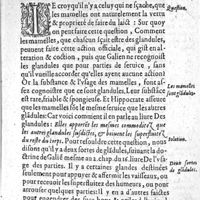 IE croy qu'il n'y a celuy qui ne sçache, que
les mammelles ont naturellement la vertu
& proprieté de faire du laict : Sur quoy
on peut faire cette question, Comment
les mammelles, que chacun sçait estre des glandules,
peuvent faire cette action officiale, qui gist en al-
teration & coction, puis que Galien ne recognoist
les glandules que pour parties de service, sans
qu'il vueille accorder qu'elles ayent aucune action?
Or la substance & l'usage des mammelles, font as-
sez cognoistre que ce sont glandules. Leur substāce
est rare, friable & spongieuse. Et Hippocrate asseure
que les mammelles sont de mesme chair que les autres
glandules. Car voici comment il en parle au liure Des
glandules: Elles apprestent les mesmes commoditez, que
les autres glandules susdictes, & boiuent les superfluitez
du reste du corps. Pour resoudre cette question, nous
disons, qu'il y a deux sortes de glādules, suiuant la do-
ctrine de Galien mesme au ch. du liure De l'usage
des parties. Il y a certaines glandes destinées
seulement pour appuyer & affermir les vaisseaux, pour
receuoir les superfluitez des humeurs, ou pour
arrouser quelques parties: Il y en a d'autres faictes
Question.
Les mammelles
sont glādules.
Solution.
Deux sortes
de glādules.